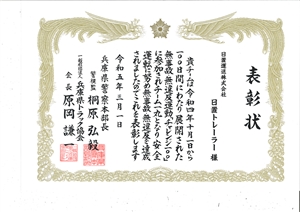 表彰状
日置運送株式会社
日置トレーラー 様
貴チームは令和四年十月一日から
一〇〇日間にわたり展開された
無事故無違反運動「チャレンジ一〇〇」
に参加されチーム一丸となり安全
運転に努め無事故無違反を達成
されましたのでこれを表彰します
令和五年三月一日
兵庫県警察本部長
警視監 桐原弘毅
一般社団法人 兵庫県トラック協会
会長 原岡謙一